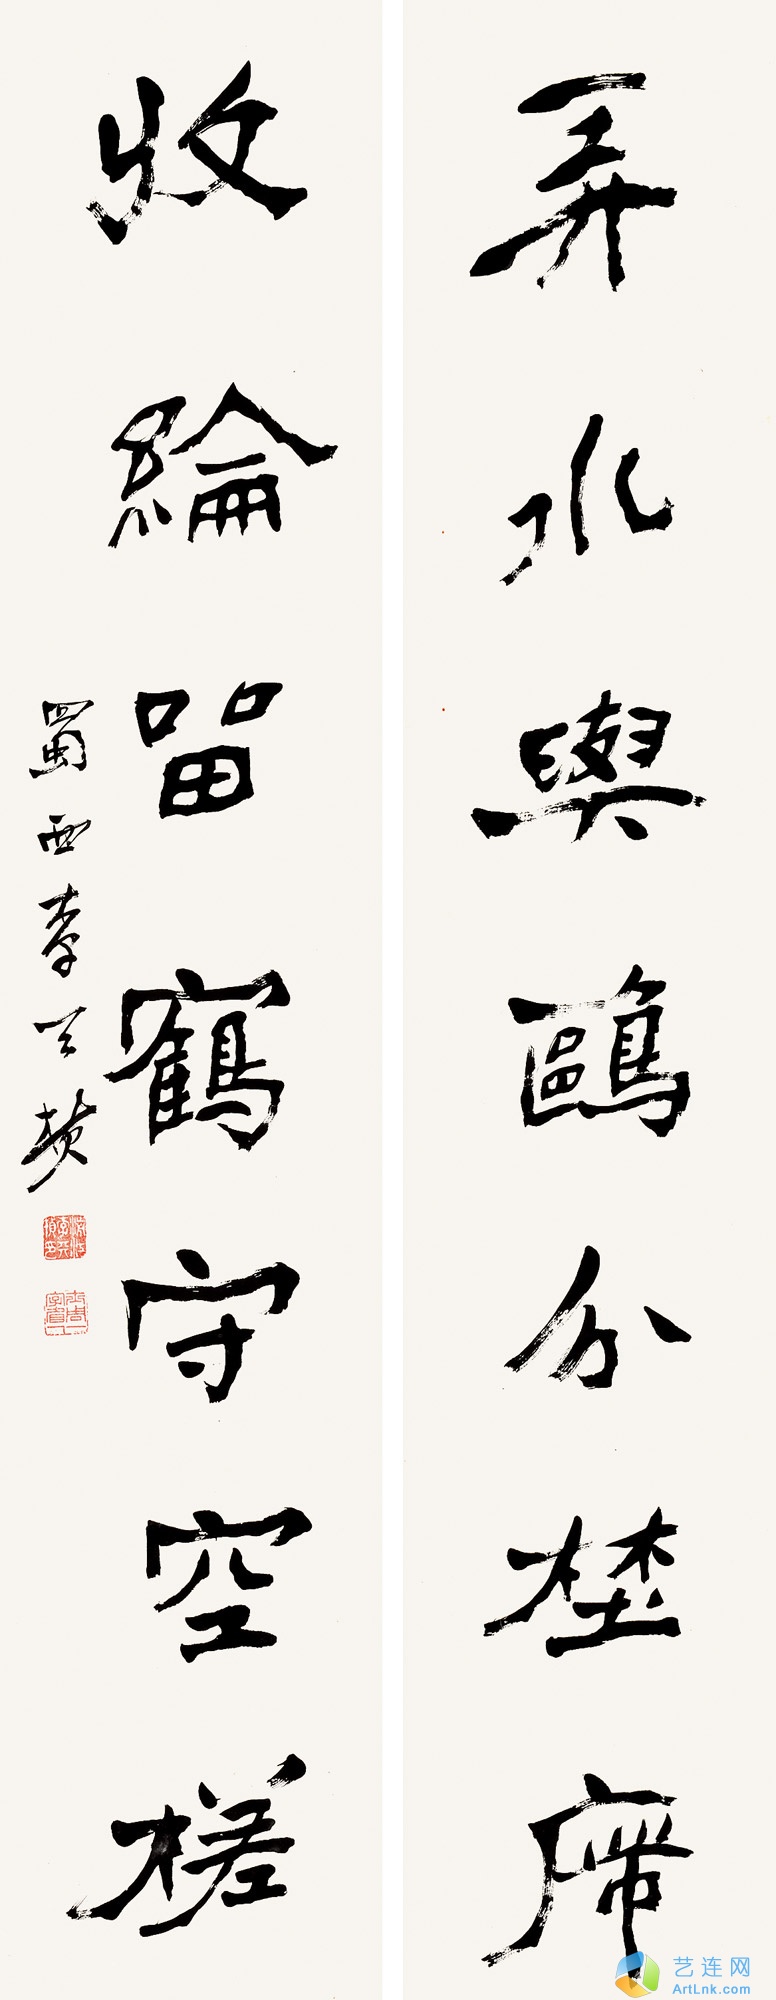 弄水與鷗分埜席
收綸留鶴守空槎
蜀西李天
艺连网
ArtLnk.com